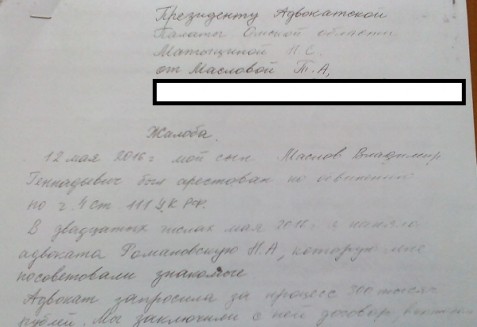 Президенту Адвокатской
Палаты Омской области
от Масловой Т.А,
Жалоба.
12 мая 2016 г мой сын Маслов Владимир
Геннадьевич был арестован по обвинению
по ч. 4 ст 111 УК РФ.
В двадцатых числах мая 2016 г я наняла
адвоката Романовскую Н.А, которую мне
посоветовали знакомые
Адвокат запросила за процесс 300 тысяч
рублей. Мы заключили с ней договор